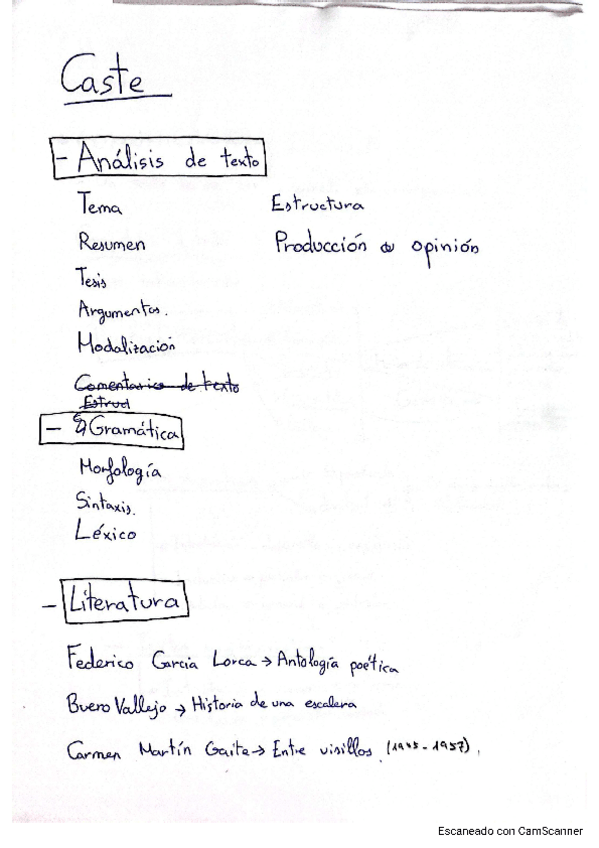 Caste
- Análisis de texto
Tema
Estructura
Resumen
Producción de opinión
Tesis
Argumentos.
Modalización
Comentarios de texto
Estruct
- Gramática
Morfología
Sintaxis.
Léxico
- Literatura
Federico Garcia Lorca → Antología poética
Buero Vallejo → Historia de una escalera
Carmen Martín Gaite → Entre visillos (1955 - 1957).
Escaneado con CamScanner